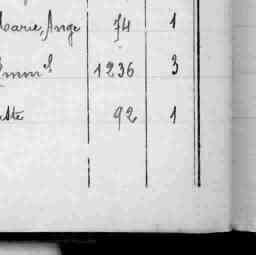 Marie, Ange 74 1
Emm^l 1236 3
92 1